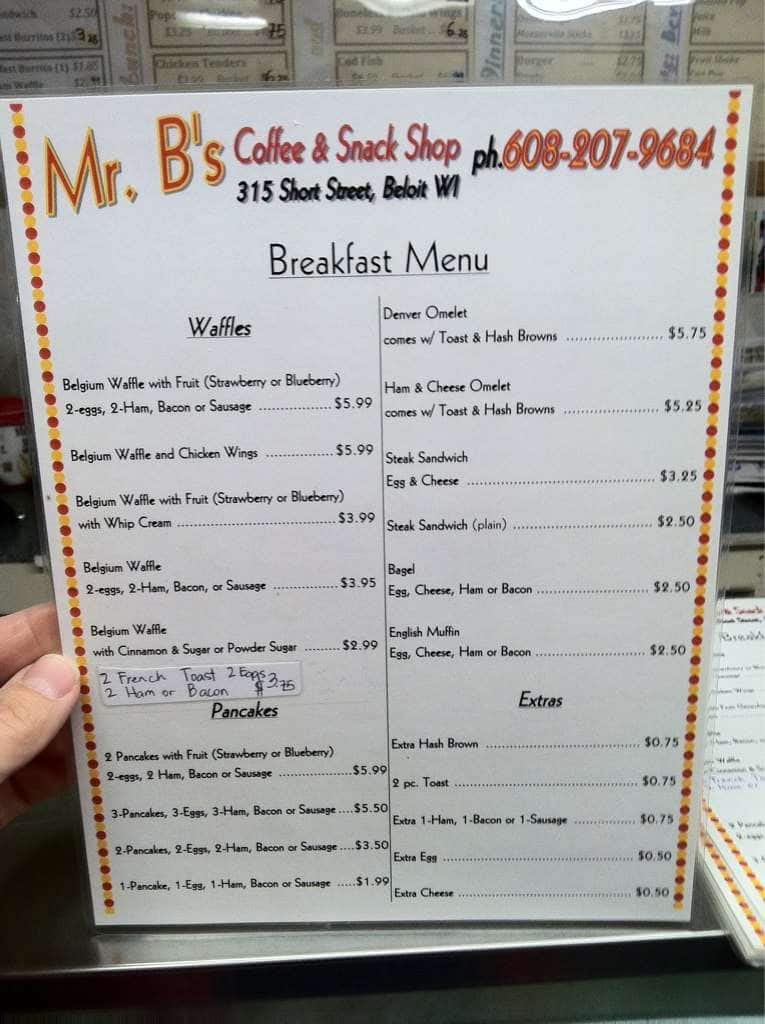 ndwich $2.50
Popc
$3.25
75
Boneless Wings
$3.99 Basket .. 6.25
Mozzarella Sticks
$1.75
Juice
Milk
ast Burritos (2) 3.25
Lunch:
Dinner:
fast Burrito (1) $1.85
m Waffle
Chicken Tenders
$3.99 Basket
Cod Fish
Burger $2.75
Fruit Shake
Mr. B's Coffee & Snack Shop ph.608-207-9684
315 Short Street, Beloit WI
Breakfast Menu
Waffles
Belgium Waffle with Fruit (Strawberry or Blueberry)
2-eggs, 2-Ham, Bacon or Sausage ................. $5.99
Belgium Waffle and Chicken Wings ................ $5.99
Belgium Waffle with Fruit (Strawberry or Blueberry)
with Whip Cream ....................................... $3.99
Belgium Waffle
2-eggs, 2-Ham, Bacon, or Sausage ................ $3.95
Belgium Waffle
with Cinnamon & Sugar or Powder Sugar ......... $2.99
2 French Toast 2 Eggs
2 Ham or Bacon $3.75
Pancakes
2 Pancakes with Fruit (Strawberry or Blueberry)
2-eggs, 2 Ham, Bacon or Sausage ..................$5.99
3-Pancakes, 3-Eggs, 3-Ham, Bacon or Sausage ....$5.50
2-Pancakes, 2-Eggs, 2-Ham, Bacon or Sausage....$3.50
1-Pancake, 1-Egg, 1-Ham, Bacon or Sausage .....$1.99
Denver Omelet
comes w/ Toast & Hash Browns ........................ $5.75
Ham & Cheese Omelet
comes w/ Toast & Hash Browns ........................ $5.25
Steak Sandwich
Egg & Cheese .............................................. $3.25
Steak Sandwich (plain) ................................... $2.50
Bagel
Egg, Cheese, Ham or Bacon ............................. $2.50
English Muffin
Egg, Cheese, Ham or Bacon ............................. $2.50
Extras
Extra Hash Brown ...................................... $0.75
2 pc. Toast .............................................. $0.75
Extra 1-Ham, 1-Bacon or 1-Sausage ............... $0.75
Extra Egg ................................................ $0.50
Extra Cheese ............................................ $0.50